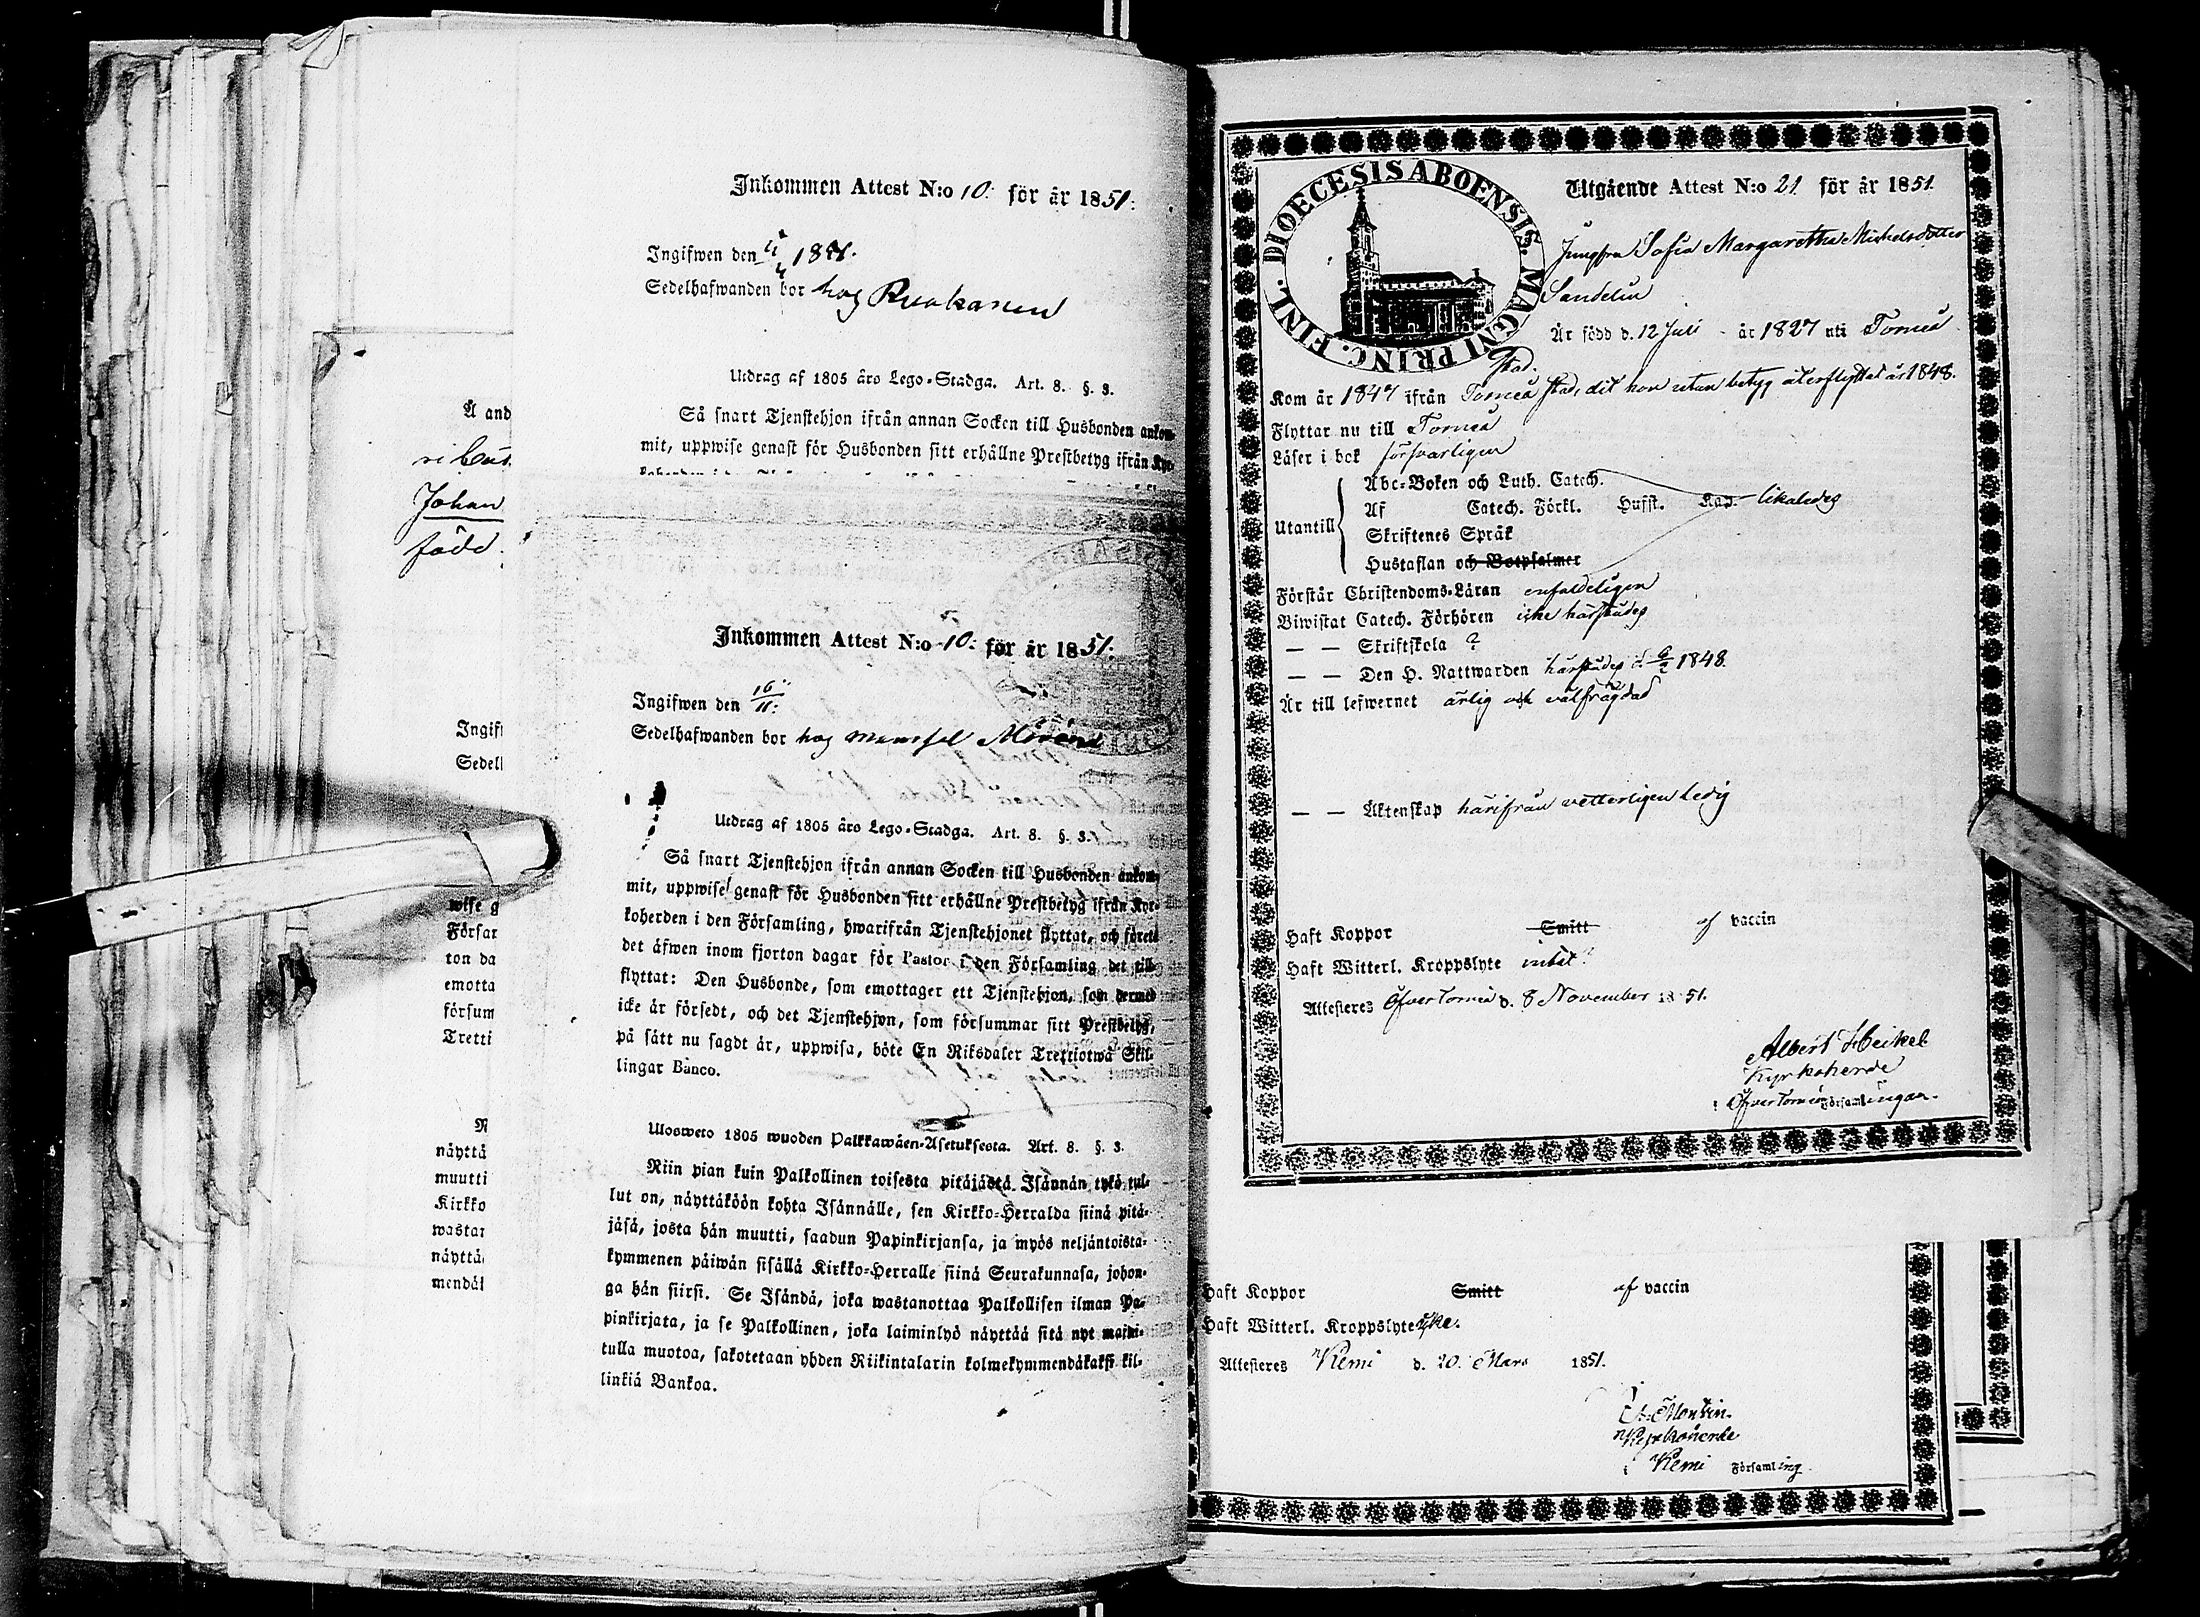 Inkommen Attest N:o 10. för år 1851.
Ingifwen den 1851.
Sedelhafwanden bor hos Ruokanen
Utdrag af 1805 års Lego-Stadga. Art. 8. §. 3.
Så snart Tjenstehjon ifrån annan Socken till Husbonden ankom-
mit, uppwise genast för Husbonden sitt erhållne Prestbetyg ifrån Kyr-
Å and
Johan
född
Ingif
Sedel
wise g
Försam
ton da
emotta
försum
Tretti
N
näyttä
muutti
Kirkko
wastan
näyttä
mendäk
Inkommen Attest N:o 10. för år 1851.
Ingifwen den 16/11.
Sedelhafwanden bor hos mamsel
Utdrag af 1805 års Lego-Stadga. Art. 8. §. 3.
Så snart Tjenstehjon ifrån annan Socken till Husbonden ankom-
mit, uppwise genast för Husbonden sitt erhållne Prestbetyg ifrån Kyr-
koherden i den Församling, hwarifrån Tjenstehjonet flyttat, och förete
det äfwen inom fjorton dagar för Pastor i den Församling det till-
flyttat: Den Husbonde, som emottager ett Tjenstehjon, som dermed
icke är försedt, och det Tjenstehjon, som försummar sitt Prestbetyg,
på sätt nu sagdt är, uppwisa, böte En Riksdaler Trettiotwå Skil-
lingar Banco.
Ulosweto 1805 wuoden Palkkawäen-Asetuksesta. Art. 8. §. 3.
Niin pian kuin Palkollinen toisesta pitäjästä Isännän tykö tul-
lut on, näyttäköön kohta Isännälle, sen Kirkko-Herralda siinä pitä-
jäsä, josta hän muutti, saadun Papinkirjansa, ja myös neljäntoista-
kymmenen päiwän sisällä Kirkko-Herralle siinä Seurakunnasa, johon-
ga hän siirsi. Se Isändä, joka wastanottaa Palkollisen ilman Pa-
pinkirjata, ja se Palkollinen, joka laiminlyö näyttää sitä nyt maini-
tulla muotoa, sakotetaan yhden Riikintalarin kolmekymmendäkaksi kil-
linkiä Bankoa.
DIOECESIS ABOENSIS. MAGNI PRINC. FINL.
Utgående Attest N:o 21 för år 1851.
Jungfru Sofia Margaretha Michelsdotter
Sandelin
Är född d. 12 Juli år 1827 uti Torneå
Stad.
Kom år 1847 ifrån Torneå stad, dit hon utan betyg återflyttat år 1848.
Flyttar nu till Torneå
Läser i bok försvarligen
Utantill
Abc-Boken och Luth. Catech.
Af Catech. Förkl. Hufst. Kap. likaledes
Skriftenes Språk
Hustaflan och Botpsalmer
Förstår Christendoms-Läran enfaldeligen
Biwistat Catech. Förhören icke härstädes
— — Skriftskola ?
— — Den H. Nattwarden härstädes d. 1848.
Är till lefwernet ärlig och välfrägdad
— — Äktenskap härifrån vetterligen ledig
Haft Koppor Smitt af vaccin
Haft Witterl. Kroppslyte intet
Attesteres Öfver Torneå d. 8 November 1851.
Albert Heikel
Kyrkoherde
i Öfver Torneå Församlingar.
Haft Koppor Smitt af vaccin
Haft Witterl. Kroppslyte icke.
Attesteres Kemi d. 20. Mars 1851.
Kyrkoherde
i Kemi Församling